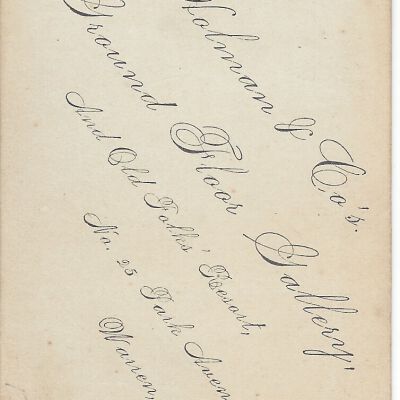 Holman & Co's.
Ground Floor Gallery,
And Old Folks' Resort,
No. 25 Park Aven
Warren,